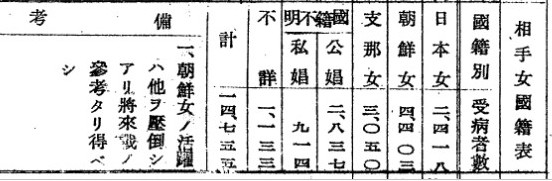 相手女國籍表
國籍別 受病者數
日本女 二、四一八
朝鮮女 四、四〇三
支那女 三、〇五〇
國籍不明 公娼 二、八三七
私娼 九一四
不詳 一、一三三
計 一四、七五五
備考
一、朝鮮女ノ活躍
ハ他ヲ壓倒シ
アリ將來戰ノ
參考タリ得ベ
シ